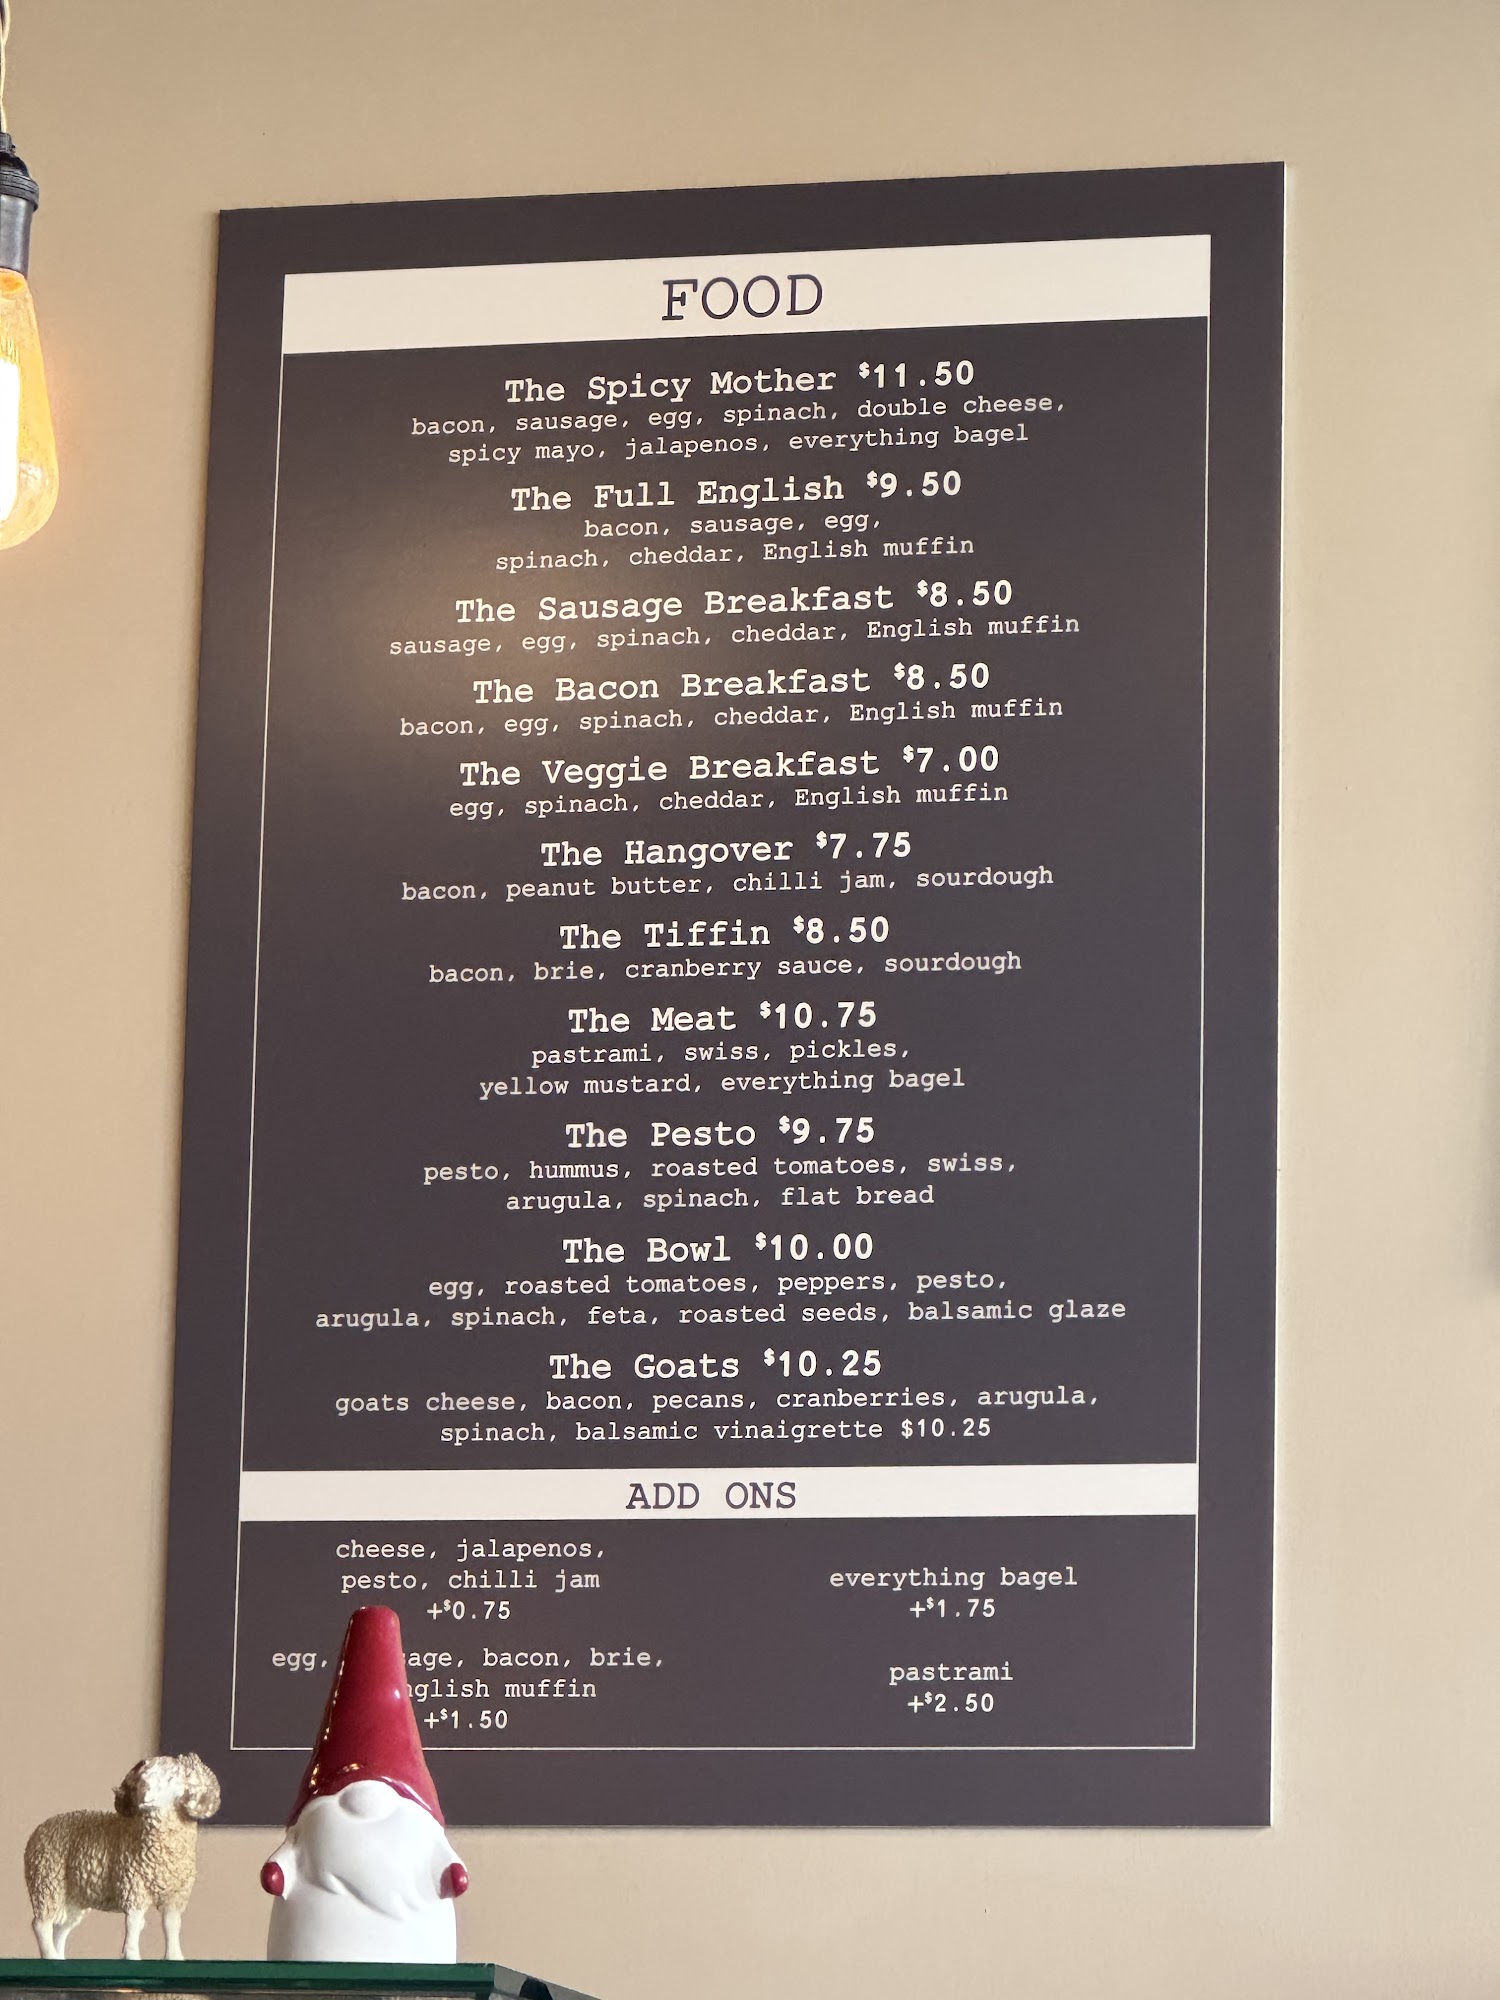 FOOD
The Spicy Mother $11.50
bacon, sausage, egg, spinach, double cheese,
spicy mayo, jalapenos, everything bagel
The Full English $9.50
bacon, sausage, egg,
spinach, cheddar, English muffin
The Sausage Breakfast $8.50
sausage, egg, spinach, cheddar, English muffin
The Bacon Breakfast $8.50
bacon, egg, spinach, cheddar, English muffin
The Veggie Breakfast $7.00
egg, spinach, cheddar, English muffin
The Hangover $7.75
bacon, peanut butter, chilli jam, sourdough
The Tiffin $8.50
bacon, brie, cranberry sauce, sourdough
The Meat $10.75
pastrami, swiss, pickles,
yellow mustard, everything bagel
The Pesto $9.75
pesto, hummus, roasted tomatoes, swiss,
arugula, spinach, flat bread
The Bowl $10.00
egg, roasted tomatoes, peppers, pesto,
arugula, spinach, feta, roasted seeds, balsamic glaze
The Goats $10.25
goats cheese, bacon, pecans, cranberries, arugula,
spinach, balsamic vinaigrette $10.25
ADD ONS
cheese, jalapenos,
pesto, chilli jam
+$0.75
egg, age, bacon, brie,
nglish muffin
+$1.50
everything bagel
+$1.75
pastrami
+$2.50